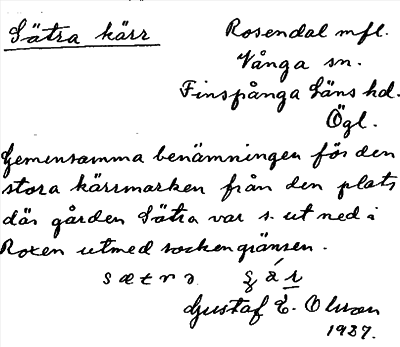 Sätra kärr
Rosendal mfl.
Vånga sn.
Finspånga läns hd.
Ögl.
Gemensamma benämningen för den
stora kärrmarken från den plats
där gården Sätra var s. ut ned i
Roxen utmed sockengränsen.
sætrə
Gustaf E. Olsson
1937.